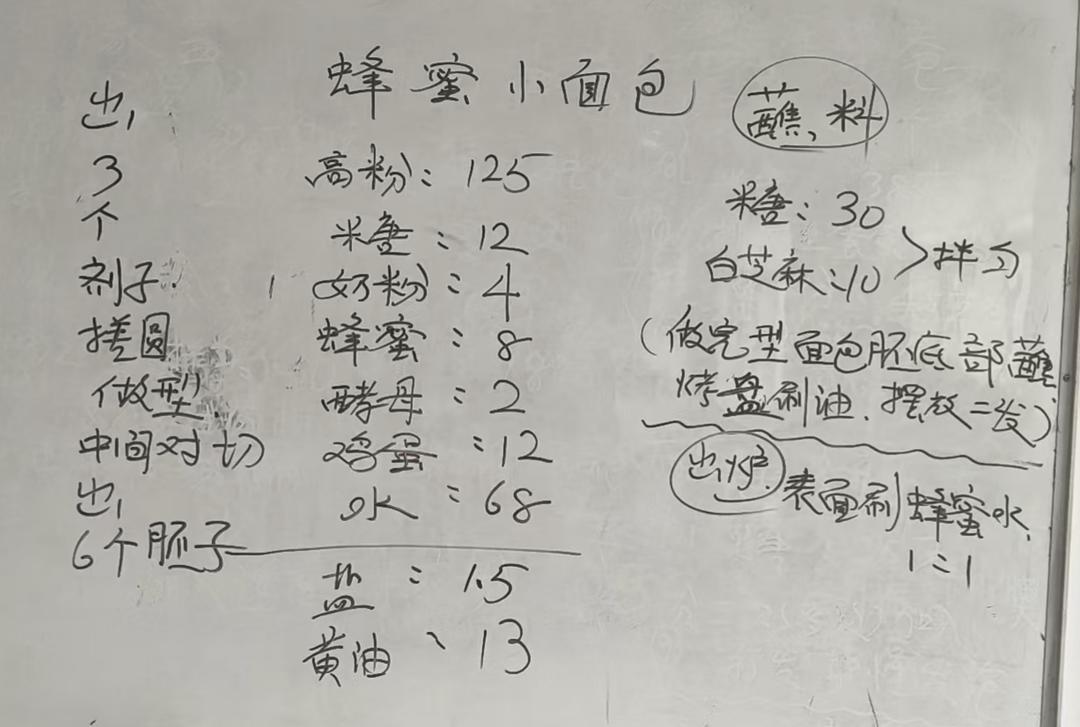 蜂蜜小面包
出
3
个
剂子
搓圆
做型
中间对切
出
6个胚子
高粉：125
米唐：12
奶粉：4
蜂蜜：8
酵母：2
鸡蛋：12
水：68
盐：1.5
黄油：13
蘸料
糖：30
白芝麻：10 > 拌匀
(做完型面包胚底部蘸
烤盘刷油.摆放二发)
出炉.表面刷蜂蜜水.
1:1